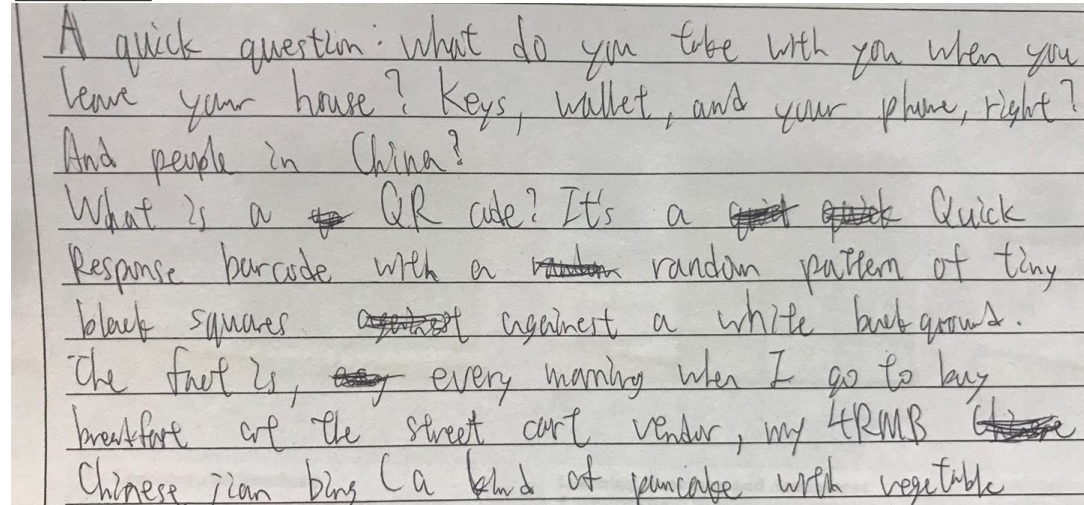 A quick question: what do you take with you when you
leave your house? Keys, wallet, and your phone, right?
And people in China?
What is a QR code? It's a Quick
Response barcode with a random pattern of tiny
black squares againest a white background.
The fact is, every morning when I go to buy
breakfast at the street cart vendor, my 4RMB
Chinese jian bing (a kind of pancake with vegetable